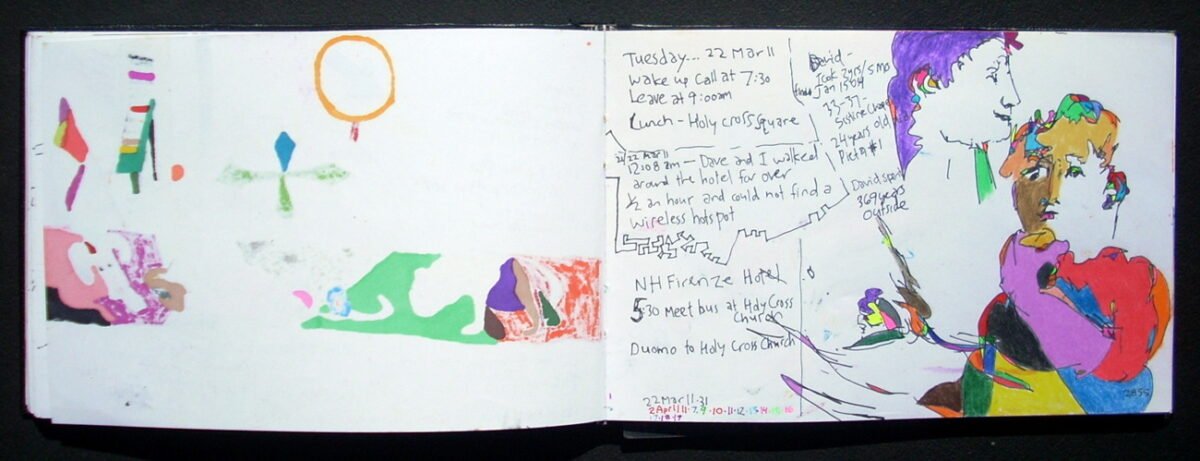 Tuesday... 22 Mar 11
Wake up Call at 7:30
Leave at 9:00am
Lunch - Holy cross square
22 Mar 11
12:08 am - Dave and I walked
around the hotel for over
1/2 an hour and could not find a
wireless hotspot
NH Firenze Hotel
5:30 meet bus at Holy Cross
Church
Duomo to Holy Cross Church
22 Mar 11.31
2 April 11.7.9.10.11.12.13 14.15.16
17.18.19
David -
took 2 yrs/5 mo
Jan 1504
33-37-
Sistine
24 years old
Pieta #1
David spent
369 years
outside